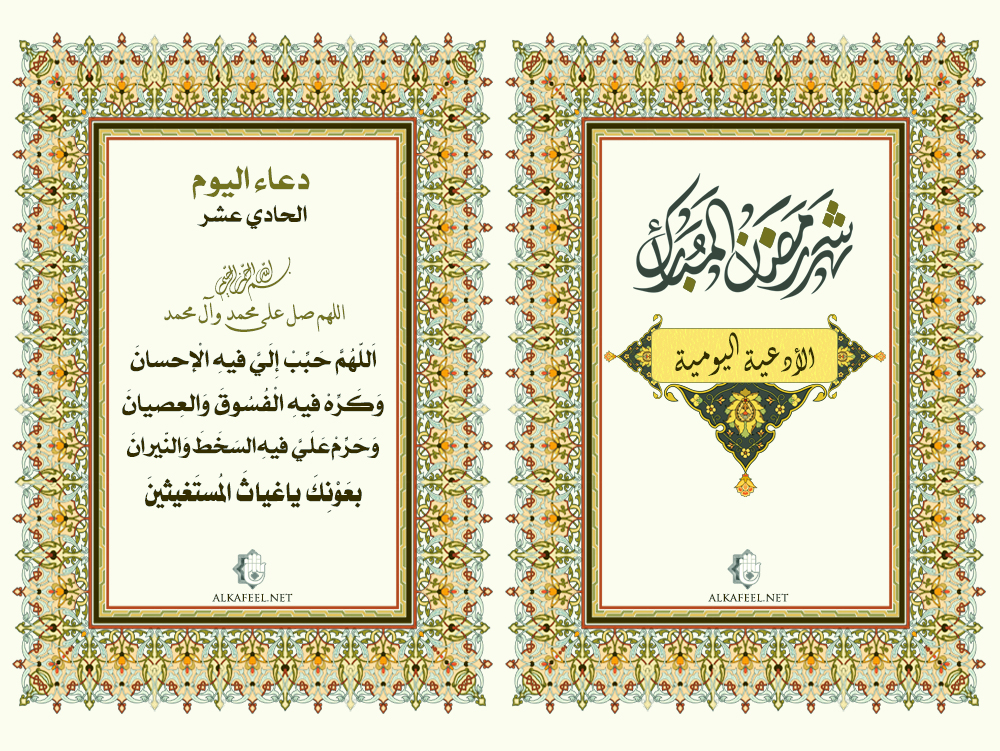 شهر رمضان المبارك
الأدعية اليومية
ALKAFEEL.NET
دعاء اليوم
الحادي عشر
بسم الله الرحمن الرحيم
اللهم صل على محمد وآل محمد
اَللّهُمَّ حَبّبْ إلَيَّ فيهِ الْإحسانَ
وَكَرِّهْ فيهِ الْفُسُوقَ وَالعِصيانَ
وَحَرِّمْ عَلَيَّ فيهِ السَخَطَ وَالنّيرانَ
بعَوْنِكَ ياغياثَ المُستَغيثينَ
ALKAFEEL.NET